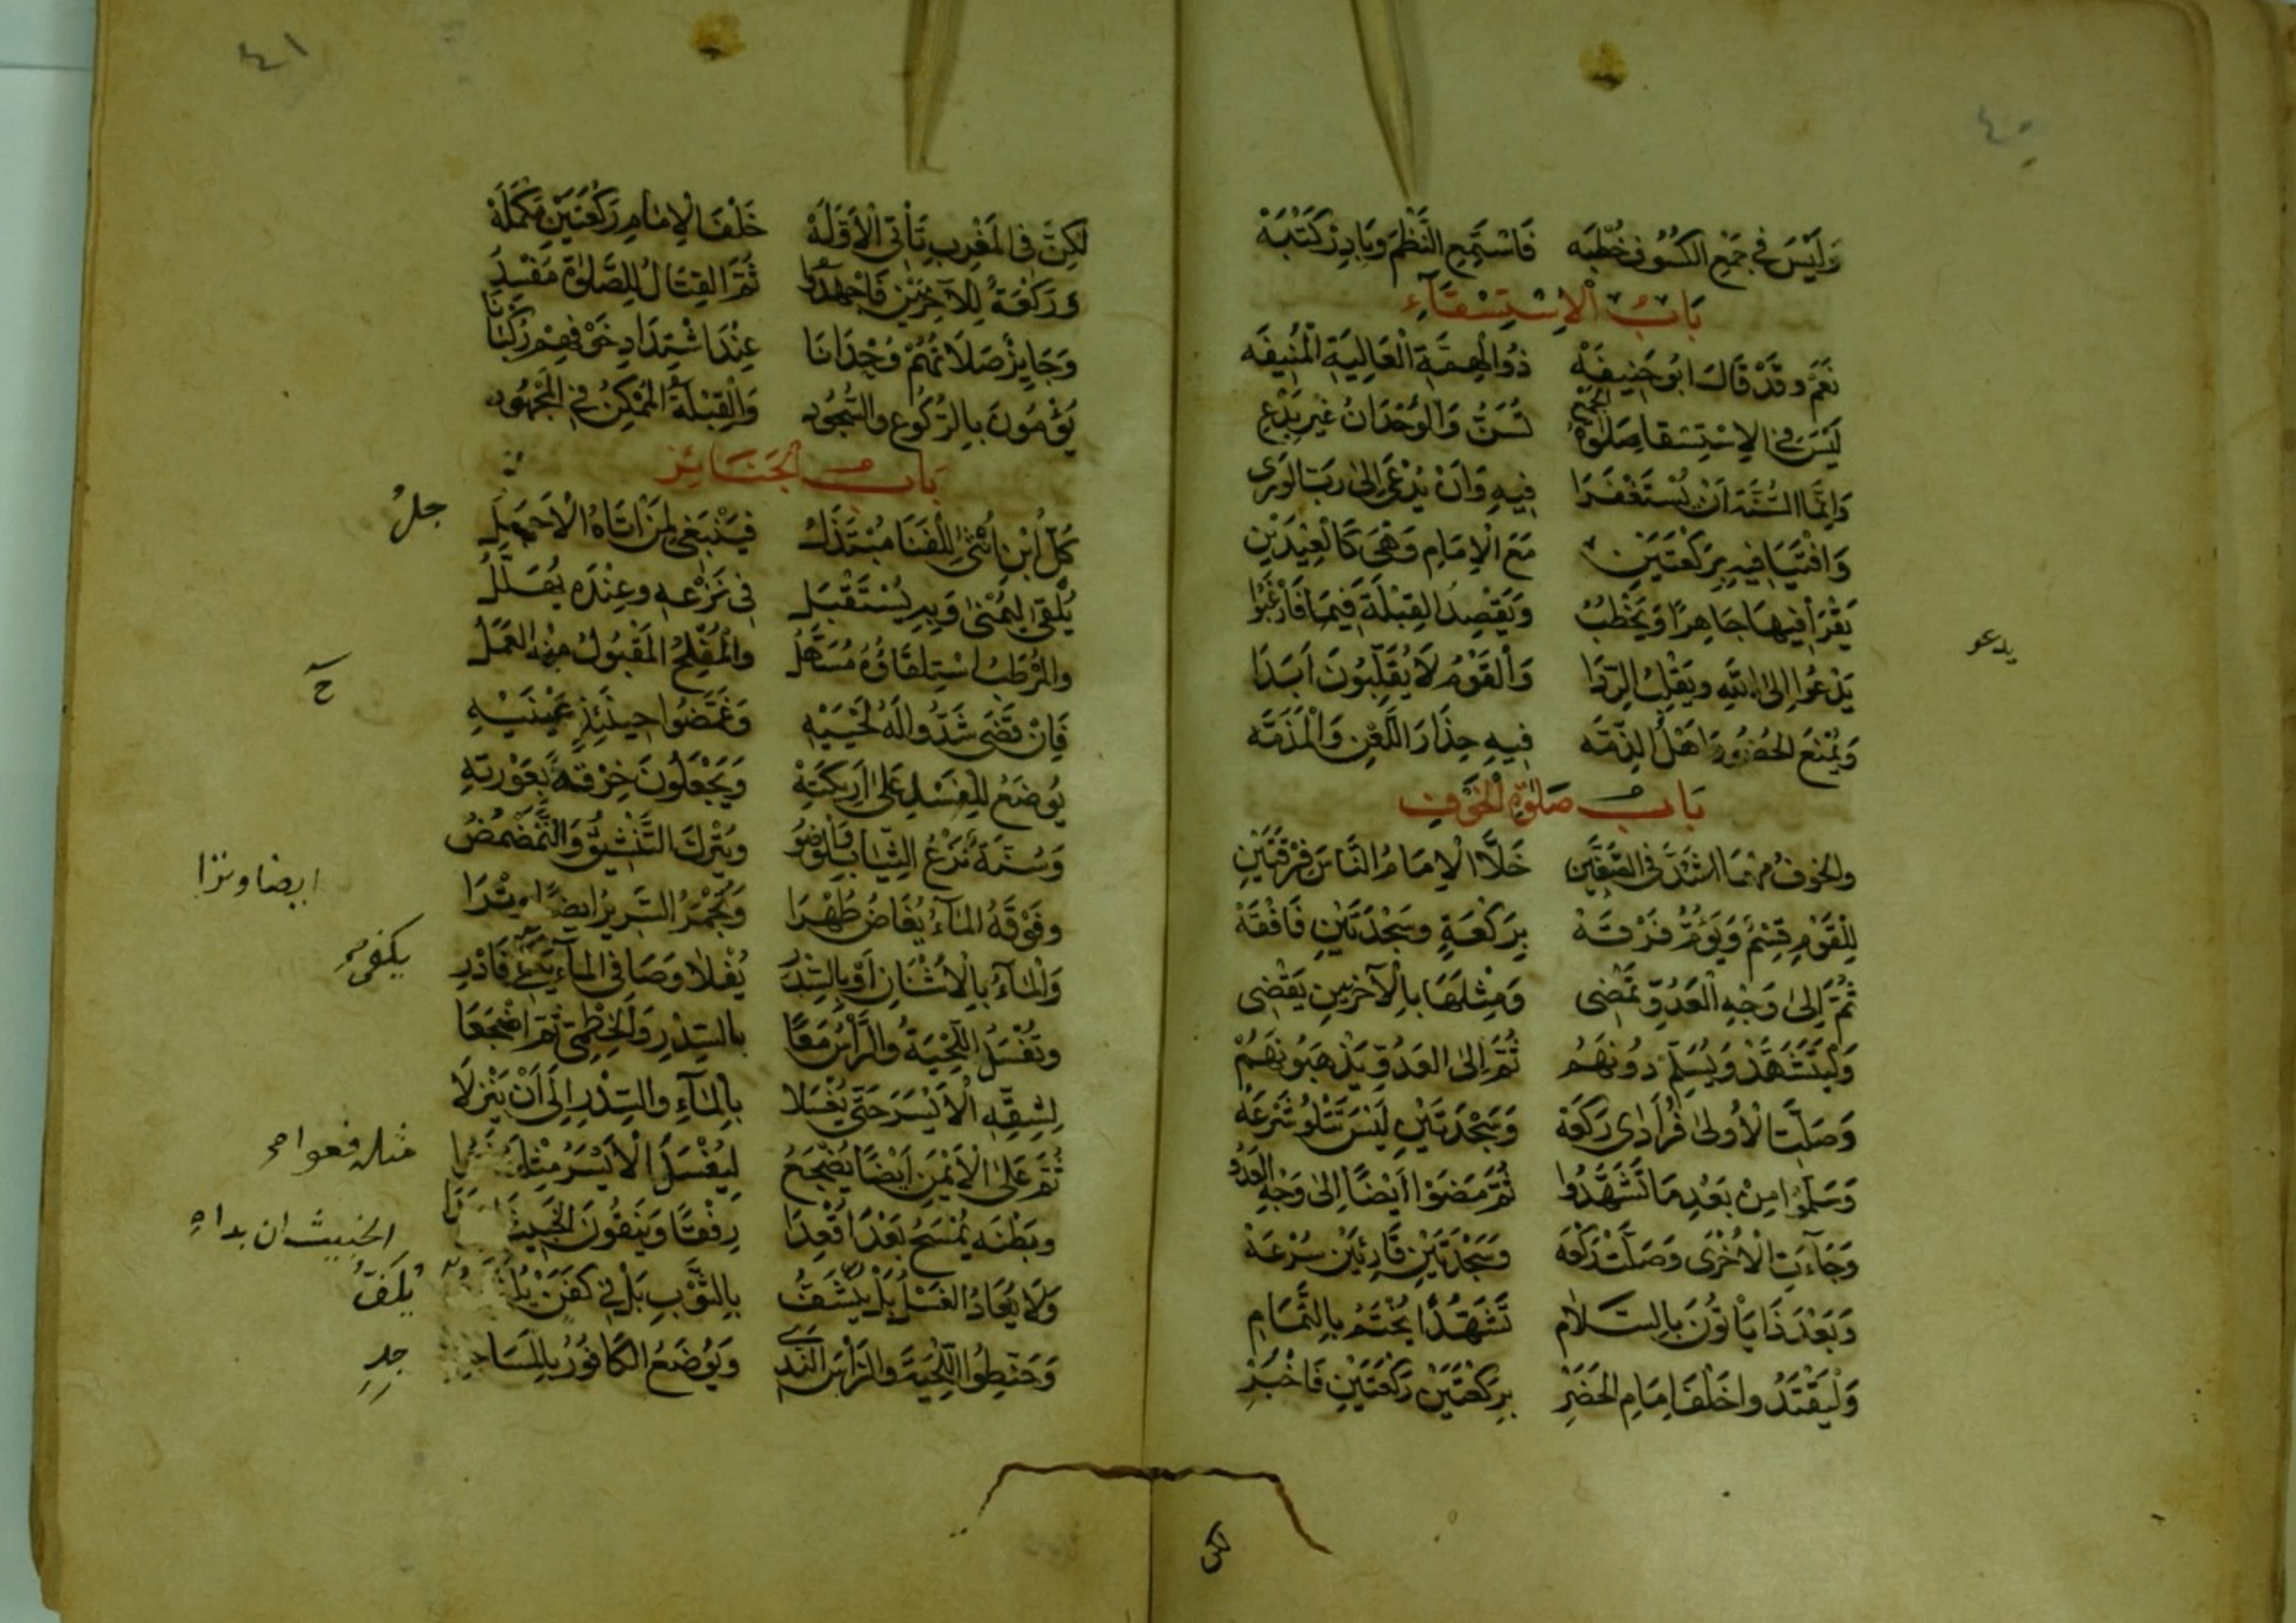 ٤٠
وَلَيْسَ فِي جَمْعِ الكُسُوفِ خُطْبَه فَاسْتَمِعِ النَّظْمَ وَبَادِرْ كَتْبَهْ
بَابُ الْاِسْتِسْقَآءِ
نَعَمْ وَقَدْ قَالَ ابُو حَنِيفَهْ ذُو الْهِمَّةِ الْعَالِيَةِ الْمُنِيفَه
لَيْسَ فِي الِاسْتِسْقَا صَلٰوةُ الجَمْعِ تُسَنُّ وَالْوُحْدَانُ غَيْرُ بِدْعِ
وَاِنَّمَا السُّنَّةُ اَنْ يُسْتَغْفَرَا فِيهِ وَاَنْ يُدْعٰى اِلٰى رَبِّ الوَرٰى
وَافْتَيَا فِيهِ بِرَكْعَتَيْنِ مَعَ الْاِمَامِ وَهْيَ كَالْعِيْدَيْنِ
يَقْرَأُ فِيهَا جَاهِرًا وَيَخْطُبُ وَيَقْصِدُ القِبْلَةَ فِيمَا فَارْغَبُوا
يَدْعُوا اِلَى اللهِ وَيَقْلِبُ الرِّدَا وَالْقَوْمُ لَا يُقَلِّبُونَ اَبَدَا
يدعو
وَيُمْنَعُ الحُضُورَ اَهْلُ الذِّمَّه فِيهِ حِذَارَ اللَّعْنِ وَالْمَذَمَّه
بَابُ صَلٰوةِ الْخَوْفِ
والخوفُ مهْمَا اشْتَدَّ فِى الصَّفَّيْنِ خَلَّا الْاِمَامُ النَّاسَ فِرْقَتَيْنِ
لِلْقَوْمِ قِسْمٌ وَيَؤُمُّ فِرْقَهْ بِرَكْعَةٍ وَسَجْدَتَيْنِ فَافْقَهْ
ثُمَّ اِلٰى وَجْهِ الْعَدُوِّ تَمْضِى وَمِثْلَهَا بِالْآخَرِينَ يَقْضِى
وَلْيَتَشَهَّدْ وَيُسَلِّمْ دُونَهُمْ ثُمَّ اِلٰى العَدُوِّ يَذْهَبُونَهُمْ
وَصَلَّتِ الْاُولٰى فُرَادٰى رَكْعَهْ وَسَجْدَتَيْنِ لَيْسَ تَتْلُو شَرْعَهْ
وَسَلَّمُوا مِنْ بَعْدِ مَا تَشَهَّدُوا ثُمَّ مَضَوْا اَيْضًا اِلٰى وَجْهِ العَدُو
وَجَآءَتِ الْاُخْرٰى وَصَلَّتْ رَكْعَهْ وَسَجْدَتَيْنِ قَارِئِيْنَ سُرْعَهْ
وَبَعْدَ ذَا يَأْتُونَ بِالسَّلَامِ تَشَهُّدًا يُخْتَمُ بِالتَّمَامِ
وَلْيَقْتَدُوا خَلْفَ اِمَامِ الحَضَرِ بِرَكْعَتَيْنِ رَكْعَتَيْنِ فَاخْبُرِ
لكن
٤١
لٰكِنَّ فِى المَغْرِبِ تَأْتِى الْاَوَّلَهْ خَلْفَ الْاِمَامِ رَكْعَتَيْنِ مُكْمَلَهْ
وَرَكْعَةٌ لِلْآخَرِيْنَ فَاجْهَدُوا ثُمَّ القِتَالُ لِلصَّلٰوةِ مُفْسِدُ
وَجَايِزٌ صَلَاتُهُمْ وُحْدَانَا عِنْدَ اشْتِدَادِ خَوْفِهِمْ رُكْبَانَا
يُؤْمُونَ بِالرُّكُوعِ وَالسُّجُودِ وَالْقِبْلَةُ المُمْكِنُ فِي الْمَجْهُودِ
بَابُ الْجَنَائِزِ
كُلُّ ابْنِ اُنْثٰى لِلْفَنَا مُبْتَذَلُ فَيَنْبَغِى لِمَنْ اَتَاهُ الْاَجَلُ
جلُ
يُلْقٰى لِيُمْنٰى وَبِهِ يُسْتَقْبَلُ فِى نَزْعِهِ وَعِنْدَهُ يُهَلَّلُ
والمُرْطِبُ اسْتِلْقَاؤُهُ مُسَهِّلُ وَالْمُفْلِحُ الْمَقْبُولُ مِنْهُ العَمَلُ
فَاِنْ قَضٰى شَدُّوا لَهُ لَحْيَيْهِ وَغَمَّضُوا حِينَئِذٍ عَيْنَيْهِ
يُوضَعُ لِلْغَسْلِ عَلٰى اَرِيكَتِهْ وَيَجْعَلُونَ خِرْقَةً بِعَوْرَتِهِ
وَسُنَّةٌ نَزْعُ الثِّيَابِ وَالْوُضُو وَيَتْرُكُ التَّنْشِيقُ وَالتَّمَضْمُضُ
وَفَوْقَهُ المَآءُ يُفَاضُ طُهْرَا وَيُجْمَرُ السَّرِيرُ ايضًا وِتْرَا
ايضا وترا
وَالْمَاءُ بِالْاُشْنَانِ اَوْ بِالسِّدْرِ يُغْلٰا وَصَافِى المَآءِ يَكْفِى فَادْرِ
يكفى
وَتُغْسَلُ اللِّحْيَةُ وَالرَّأْسُ مَعًا بِالسِّدْرِ وَالخِطْمِى ثُمَّ اضْجَعَا
لِشِقِّهِ الْاَيْسَرِ حَتّٰى يُغْسَلَا بِالْمَآءِ وَالسِّدْرِ اِلٰى اَنْ يَنْزِلَا
ثُمَّ عَلَى الْاَيْمَنِ اَيْضًا يُضْجَعُ لِيُغْسَلَ الْاَيْسَرُ مِثْلَهُ
مثله فعوا
وَبَطْنَه يُمْسَحُ بَعْدُ اقْعِدَا رِفْقًا وَيَنْقُونَ الخَبِيثَ
الخبيث ان بدا
وَلَا يُعَادُ الغَسْلُ بَلْ يُنَشَّفُ بِالثَّوْبِ بَلْ فِي كَفَنٍ
يُكَفَّفُ
وَحَنِّطُوا اللِّحْيَةَ وَالرَّأْسَ النَّدِى وَيُوْضَعُ الكَافُورُ بِالْمَسَاجِدِ
جدِ